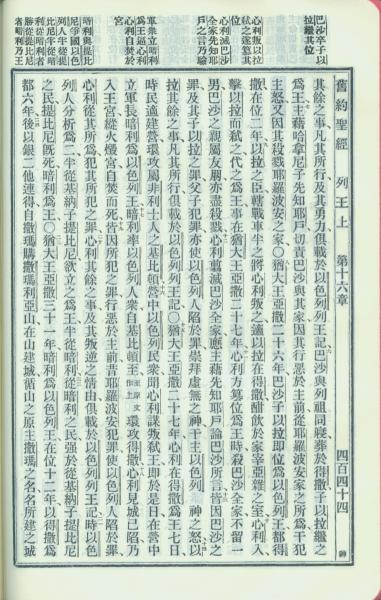 舊約聖經 列王上 第十六章 四百四十四 神
巴沙卒子以
拉繼其位
心利叛以拉
弒之遂篡其
位
心利滅巴沙
全家先知耶
戶之言乃驗
軍衆立暗利
爲王
心利自焚於
宮
暗利與提比
尼爭國以色
列人半從提
比尼半從暗
利從暗利者
從提比尼
者暗利乃王
其餘之事凡其所行及其勇力俱載於以色列列王記巴沙與列祖同寢葬於得撒子以拉繼之
爲王主藉哈拿尼子先知耶戶切責巴沙與其家因其行惡於主前從耶羅波安家之所爲干犯
主怒又因其殺戮耶羅波安之家○猶大王亞撒二十六年巴沙子以拉卽位爲以色列王都得
撒在位二年以拉之臣轄戰車半之將心利叛之適以拉在得撒酣飲於家宰亞雜之室心利入
擊以拉而弒之代之爲王事在猶大王亞撒二十七年心利方篡位爲王時殺巴沙全家不留一
男巴沙之親屬友朋亦盡殺戮心利翦滅巴沙全家應主藉先知耶戶論巴沙所言皆因巴沙之
罪及其子以拉之罪父子犯罪亦使以色列人陷於罪崇拜虛無之神干主以色列 神之怒以
拉其餘之事凡其所行俱載於以色列列王記○猶大王亞撒二十七年心利在得撒爲王七日
時民適建營環攻屬非利士人之基比頓營中以色列民衆聞心利謀叛弒王卽於是日在營中
立軍長暗利爲以色列王暗利率以色列人衆自基比頓至至原文作上環攻得撒心利見城已陷乃
入王宮縱火燬宮自焚而死皆因所犯之罪行惡於主前昔耶羅波安犯罪使以色列人陷於罪
心利從其所爲犯其所犯之罪心利其餘之事及其叛逆之情由俱載於以色列列王記時以色
列人分析爲二半從基納子提比尼欲立之爲王半從暗利從暗利之民强於從基納子提比尼
之民提比尼旣死暗利爲王○猶大王亞撒三十一年暗利爲以色列王在位十二年以得撒爲
都六年後以銀二他連得自撒瑪購撒瑪利亞山在山建城循山之原主撒瑪之名名所建之城